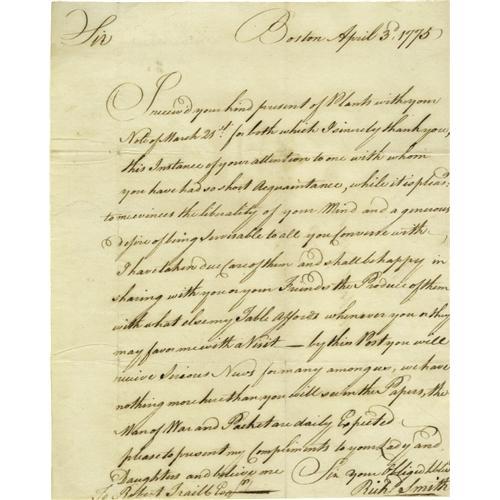 Sir Boston April 3d. 1775
I receiv'd your kind present of Plants with your
Note of March 21st. for both which I sincerely thank you,
this Instance of your attention to one with whom
you have had so short Acquaintance, while it is pleas:
to me evinces the liberality of your Mind and a generous
desire of being Serviceable to all you Converse with,
I have taken due Care of them and shall be happy in
sharing with you or your Friends the Produce of them
with what else my Table Affords whenever you or they
may favor me with a Visit — by this Post you will
receive Serious News for many among us, we have
nothing more here than you will see in the Papers, the
Man of War and Packet are daily Expected
please to present my Compliments to your Lady and
Daughters and believe me Sir your Obliged
To Robert Traill Esqr. Richd. Smith